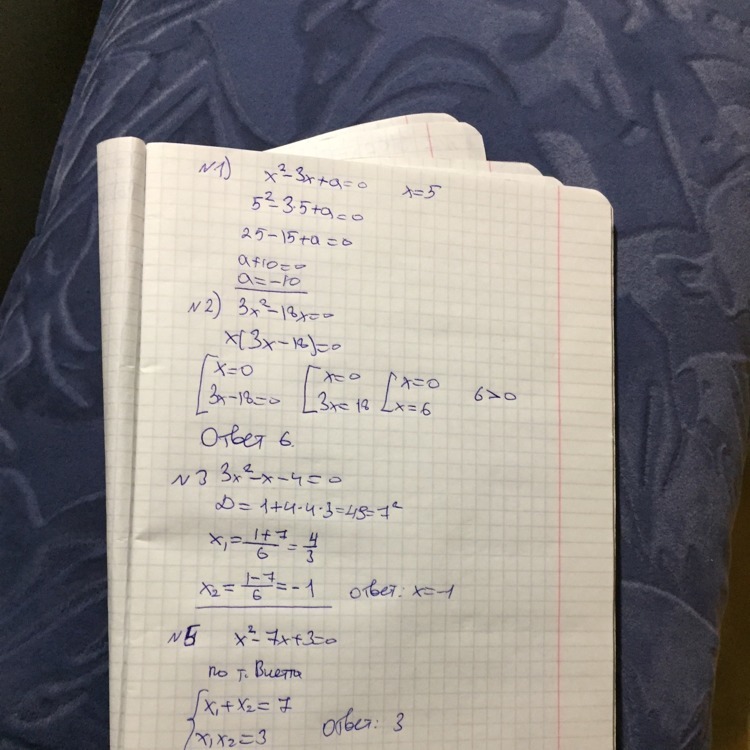 №1) x²-3x+a=0 x=5
5²-3·5+a=0
25-15+a=0
a+10=0
a=-10
№2) 3x²-18x=0
x(3x-18)=0
[x=0 [x=0 [x=0 6>0
[3x-18=0 [3x=18 [x=6
Ответ 6.
№3 3x²-x-4=0
D=1+4·4·3=49=7²
x₁=(1+7)/6=4/3
x₂=(1-7)/6=-1 ответ: x=-1
№5 x²-7x+3=0
по т. Виета
{x₁+x₂=7
{x₁x₂=3 ответ: 3